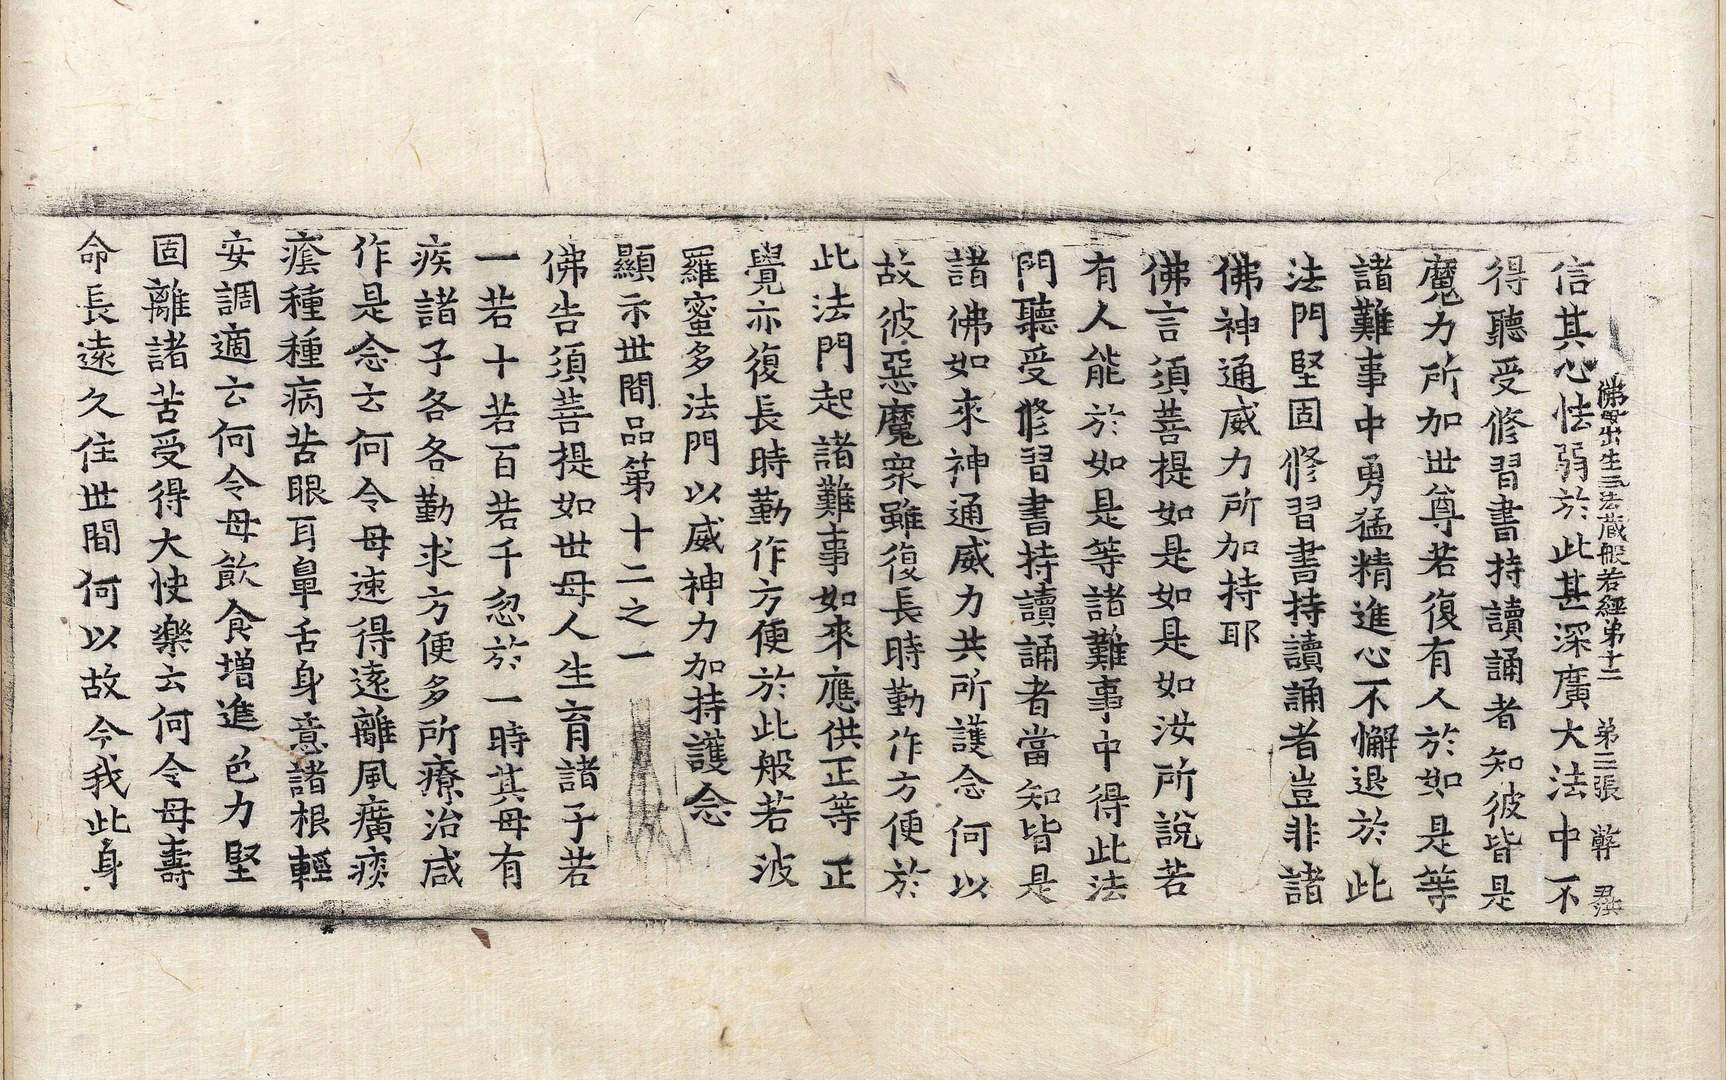 佛母出生三法藏般若經第十二 第三張
信其心怯弱於此甚深廣大法中不
得聽受修習書持讀誦者知彼皆是
魔力所加世尊若復有人於如是等
諸難事中勇猛精進心不懈退於此
法門堅固修習書持讀誦者豈非諸
佛神通威力所加持耶
佛言須菩提如是如是如汝所說若
有人能於如是等諸難事中得此法
門聽受修習書持讀誦者當知皆是
諸佛如來神通威力共所護念何以
故彼惡魔衆雖復長時勤作方便於
此法門起諸難事如來應供正等正
覺亦復長時勤作方便於此般若波
羅蜜多法門以威神力加持護念
顯示世間品第十二之一
佛告須菩提如世母人生育諸子若
一若十若百若千忽於一時其母有
疾諸子各各勤求方便多所療治咸
作是念云何令母速得遠離風癀痰
癊種種病苦眼耳鼻舌身意諸根輕
安調適云何令母飲食增進色力堅
固離諸苦受得大快樂云何令母壽
命長遠久住世間何以故今我此身